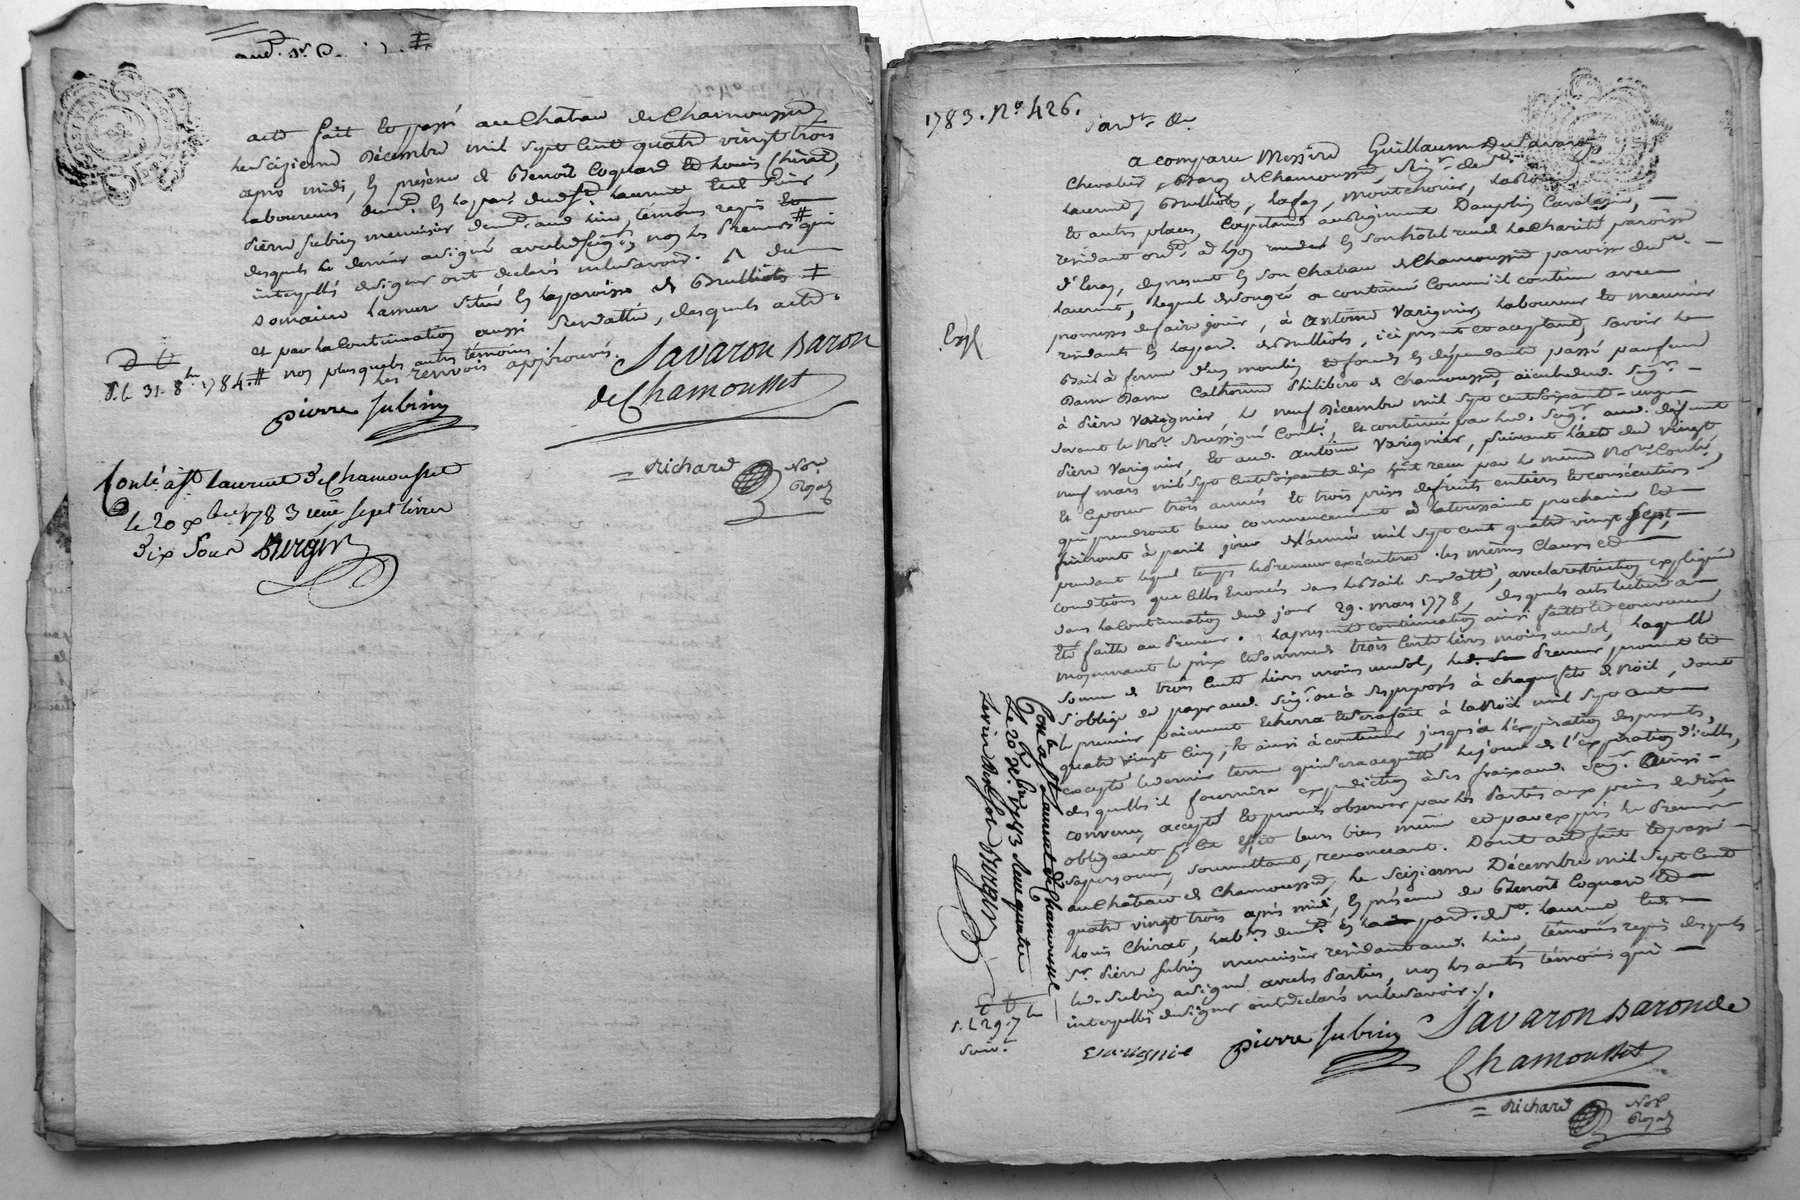 acte fait et passé au Chateau de Chamousset
le seizieme Décembre mil sept cent quatre vingt trois
après midi, en présence de Benoit Coquard et Louis Chirat,
laboureurs demt. en la par. dud. st. Laurent et de Pierre
Pierre Jubin menuisier demt. aud. lieu, témoins requis et
desquels le dernier a signé avec led. seigr., non les preneurs # qui
interpellés de signer ont declaré ne le savoir. Λ du
domaine Lamur situé en la paroisse de Brulliols #
et par la Continuation aussi susdattée, desquels actes.
# non plus que les autres témoins
les renvois approuvés.
D. L. 31. 8bre. 1784.
Savaron Baron
de Chamousset
pierre Jubin
Richard Nore. Royal
Conlé. à St. Laurent de Chamousset
le 20 xbre 1783 reçu sept livres
dix sous Bergier
1783. No. 426.
Pardt. &c.
a comparu Messire Guillaume de Savaron
Chevalier, Baron de Chamousset, Seigr. de St.
Laurent, Brulliols, Lafay, Montchorier, la
et autres places, Capitaine au Régiment Dauphin Cavalerie,
résidant ordt. à Lyon en son hôtel rue de la Charité paroisse
d'Enay, de présent en son Chateau de Chamousset paroisse dud. st.
Laurent, lequel de son gré a continué comme il continue avec
promesse de faire jouir, à Antoine Varignier, laboureur et meunier
Expé.
résidant en la par. de Brulliols, ici présent et acceptant, savoir le
Bail à ferme d'un moulin et fonds en dépendants passé par feue
Dame Dame Catherine Philibert de Chamousset, aïeule dud. Seigr.
à Pierre Varignier, le neuf Décembre mil sept cent soixante-onze
devant le Nore. soussigné Conlé., et continué par led. Seigr. aud. défunt
Pierre Varignier, et aud. Antoine Varignier, suivant l'acte du vingt
neuf mars mil sept cent soixante dix huit reçu par le même Nore. Conlé,
et ce pour trois années et trois prises de fruits entieres et consécutives
qui prendront leur commencement à la toussaint prochaine et
finiront à pareil jour de l'année mil sept cent quatre vingt sept,
pendant lequel temps le preneur exécutera les mêmes clauses et
conditions que celles énoncées dans le Bail susdatté, avec la restriction expliquée
dans la Continuation dud. jour 29. mars 1778, desquels acts lecture a
été faitte au preneur. La présente continuation ainsi faitte et convenue
moyennant le prix et somme de trois cents livres moins un sol, laquelle
somme de trois cents livres moins un sol, led. preneur promet et
s'oblige de payer aud. Seigr. ou à ses préposés à chaque fête de Noël, dont
le premier paiement écherra et se fera fait à la Noël mil sept cent
quatre vingt cinq, et ainsi à continuer jusqu'à l'expiration des présentes,
excepté le dernier terme qui sera acquitté le jour de l'expiration d'icelles,
desquelles il fournira expédition à ses frais aud. Seigr. Ainsi
convenu, accepté et promis observer par les Parties aux peines de droit
obligeant pr. cet effet leurs biens même et par exprès le preneur
sa personne, soumettant, renonçant. Dont acte fait et passé
au Château de Chamousset, le seizieme Décembre mil sept cent
quatre vingt trois après midi, en présence de Benoit Coquard et
Louis Chirat, labrs. demt. en la par. de st. Laurent et de
sr. Pierre Jubin menuisier résidant aud. lieu, témoins requis desquels
led. Jubin a signé avec les Parties, non les autres témoins qui
interpellés de signer ont déclaré ne le savoir./.
Conlé. à St Laurent de Chamousset
le 20 Xbre 1783 reçu quatre
Bergier
D. L. 29. 7bre
suivt.
varignié pierre Jubin Savaron Baron de
Chamousset
Richard Nore. Royal